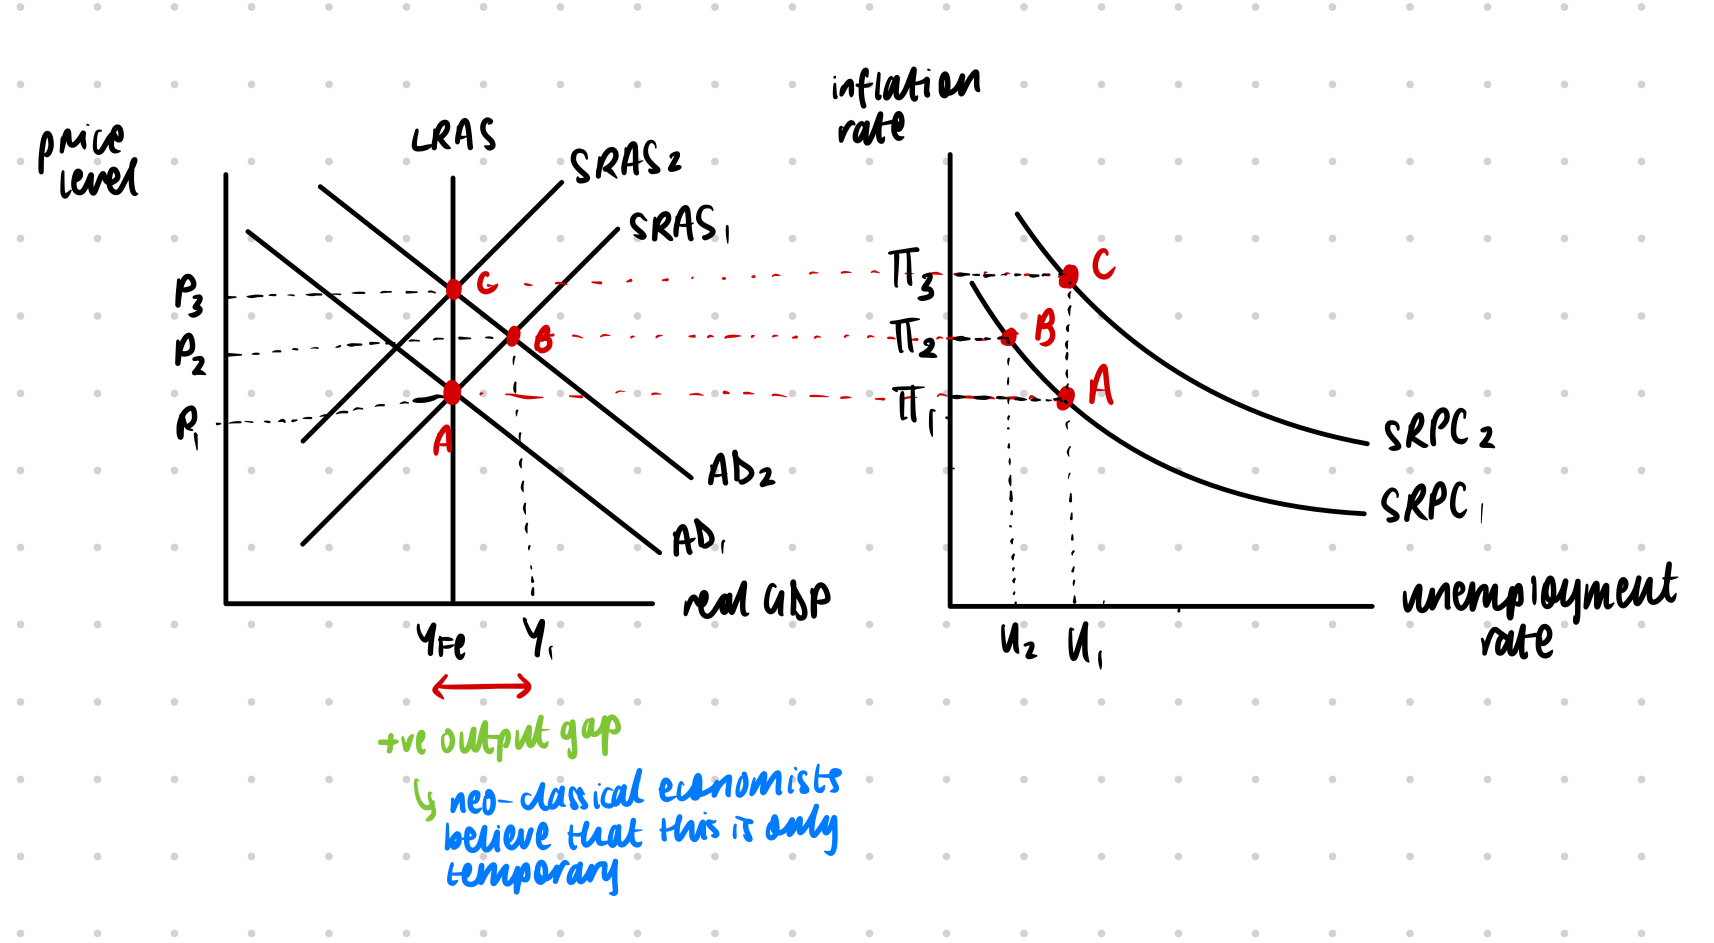 price
level
LRAS
SRAS2
SRAS1
P3
P2
P1
C
B
A
AD2
AD1
real GDP
YFe
Y1
+ve output gap
neo-classical economists
believe that this is only
temporary
inflation
rate
π3
π2
π1
C
B
A
SRPC2
SRPC1
U2
U1
unemployment
rate